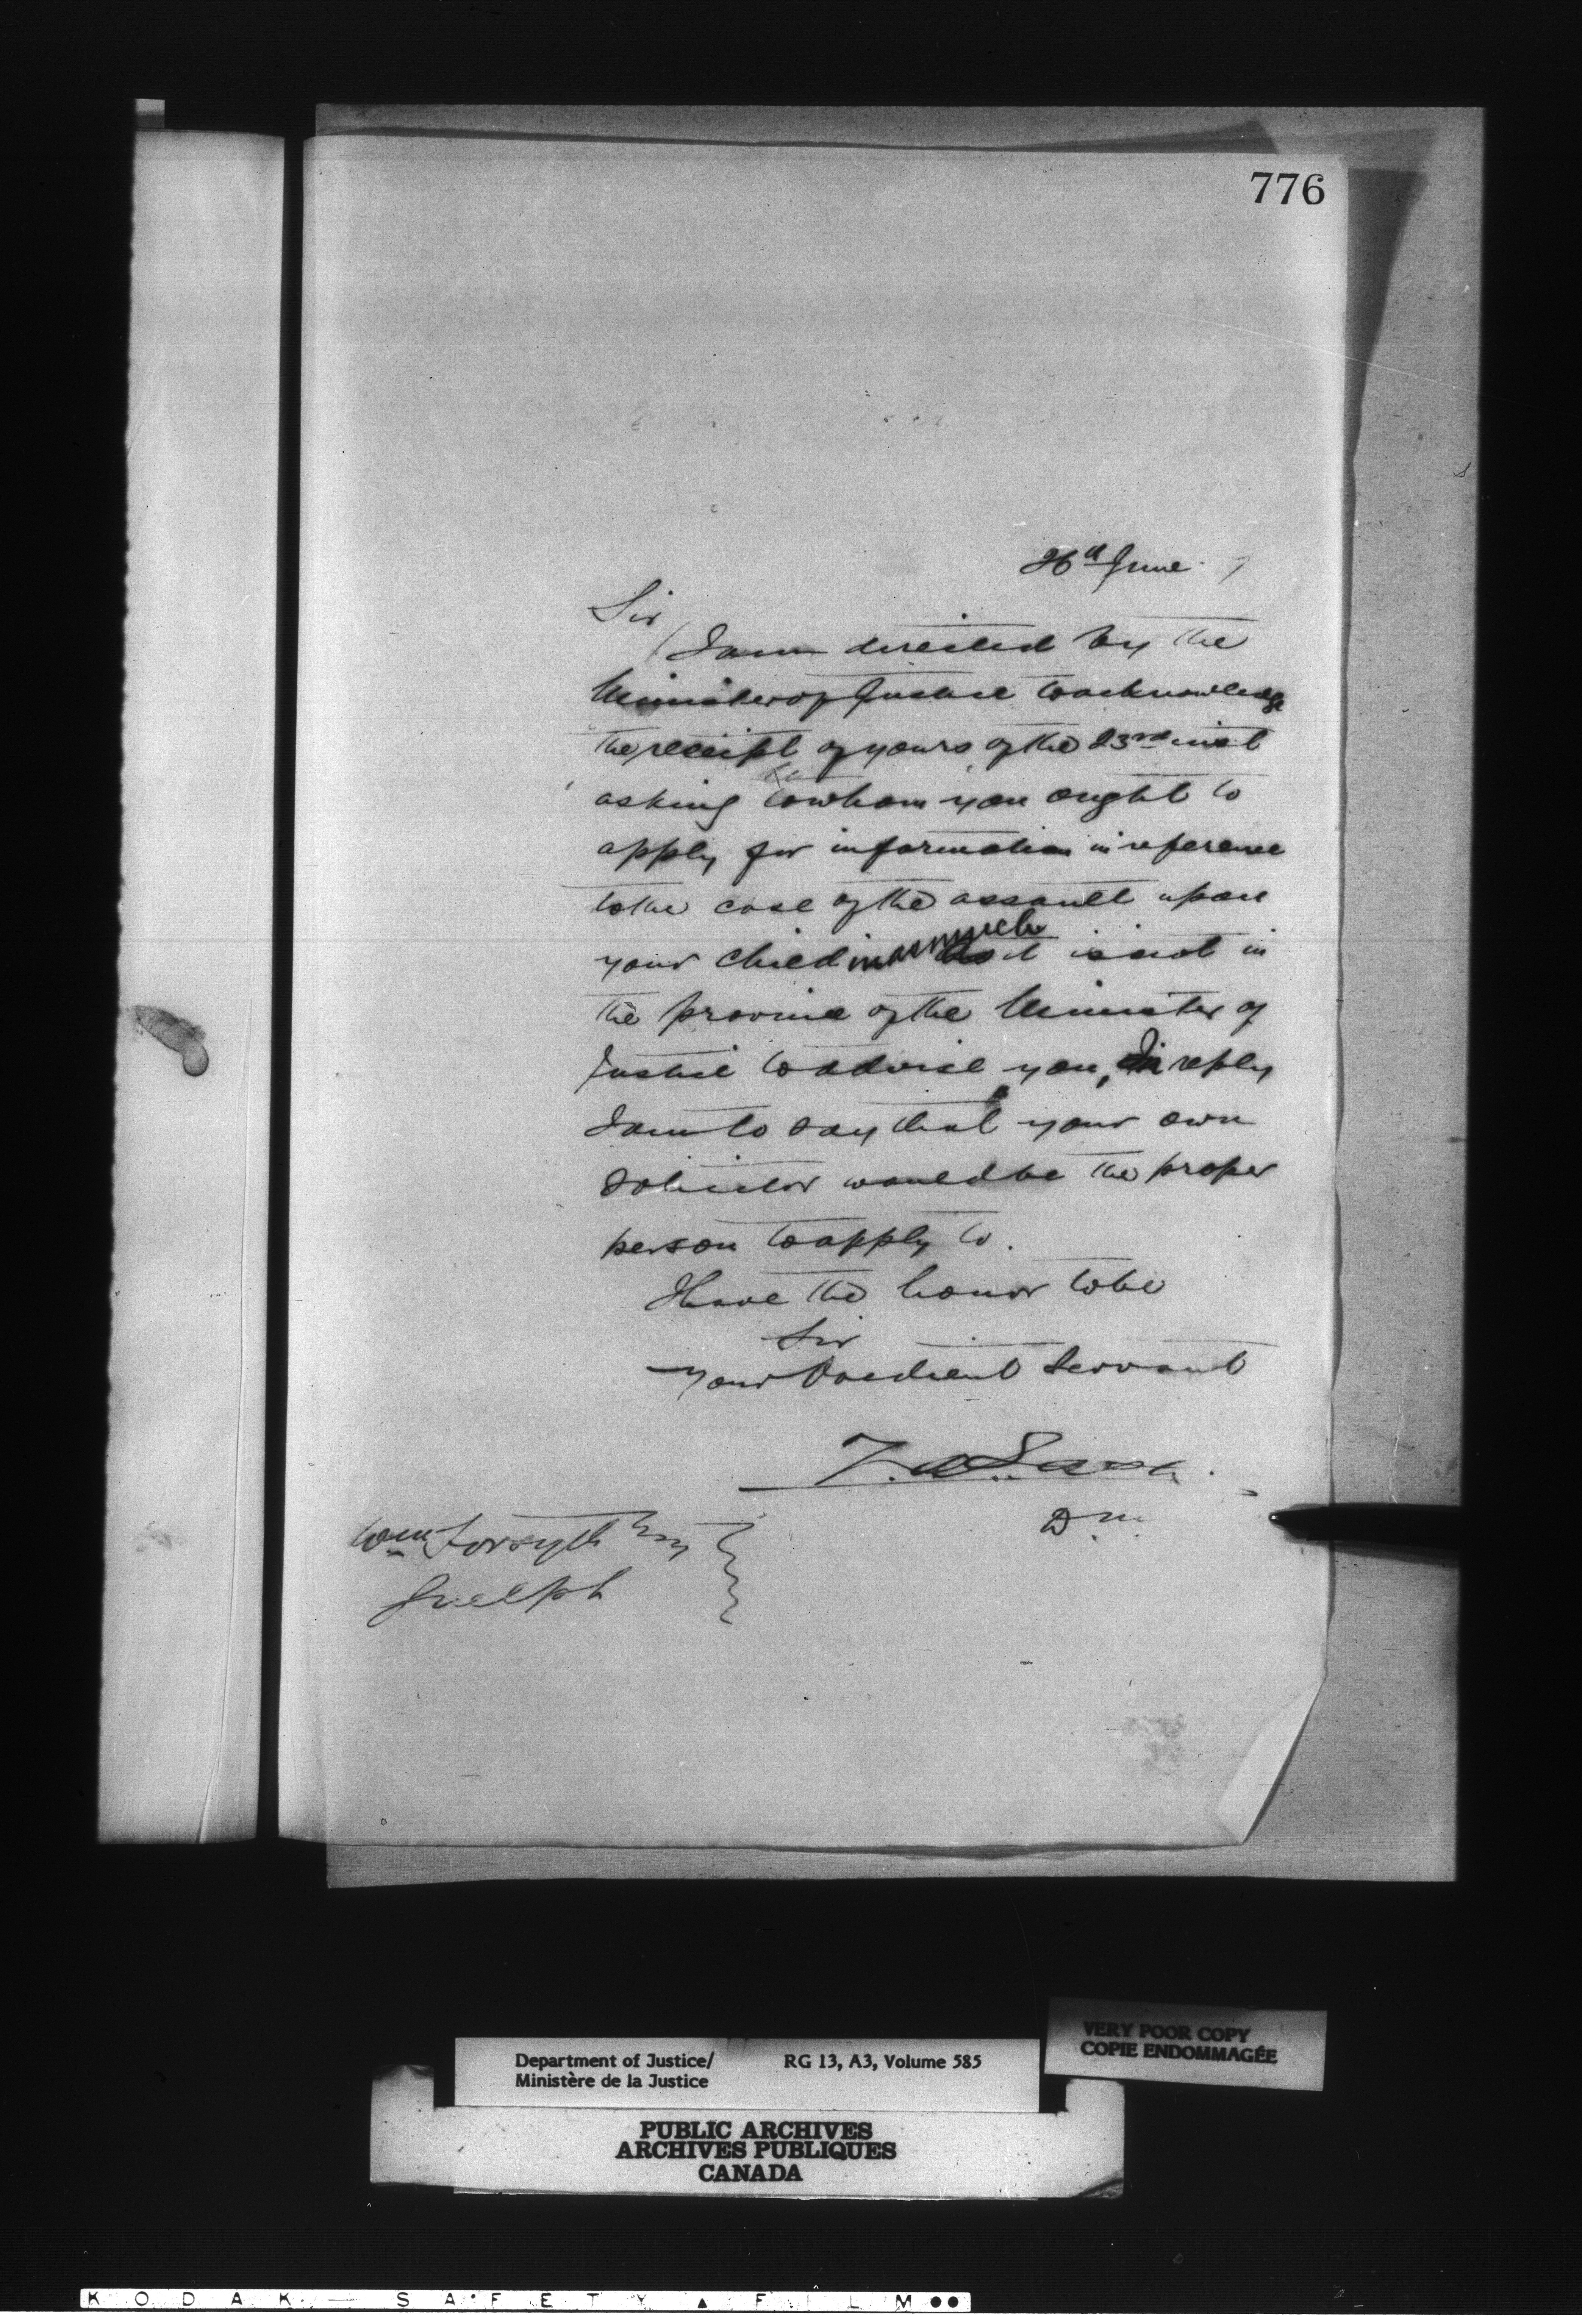 776
26th June 7
Sir
I am directed by the
Minister of Justice to acknowledge
the receipt of yours of the 23rd inst
asking to whom you ought to
apply for information in reference
to the case of the assault upon
your child inasmuch as it is not in
the province of the Minister of
Justice to advise you, In reply
I am to say that your own
solicitor would be the proper
person to apply to.
I have the honor to be
Sir
Your Obedient Servant
Z. A. Lash
D. M.
Wm Forsyth Esq
Guelph
Department of Justice/ RG 13, A3, Volume 585
Ministère de la Justice
VERY POOR COPY
COPIE ENDOMMAGÉE
PUBLIC ARCHIVES
ARCHIVES PUBLIQUES
CANADA
KODAK SAFETY FILM